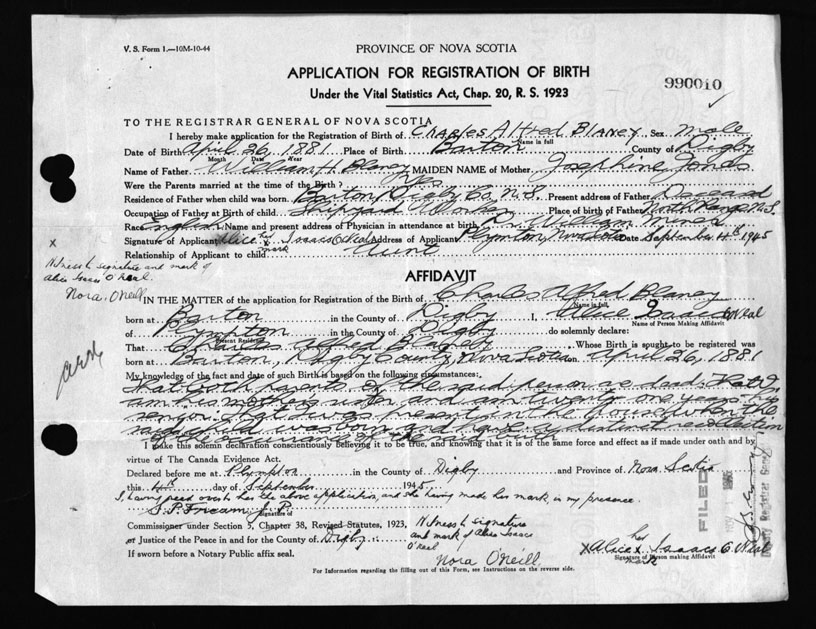 V. S. Form 1.—10M-10-44
PROVINCE OF NOVA SCOTIA
APPLICATION FOR REGISTRATION OF BIRTH
Under the Vital Statistics Act, Chap. 20, R. S. 1923
990010
TO THE REGISTRAR GENERAL OF NOVA SCOTIA
I hereby make application for the Registration of Birth of Charles Alfred Blaney Sex Male
Name in full
Date of Birth April 26, 1881 Place of Birth Barton County of Digby
Month Date Year
Name of Father William H. Blaney MAIDEN NAME of Mother Josephine
Were the Parents married at time of the Birth? Yes
Residence of Father when child was born. Barton, Digby Co. N.S. Present address of Father Deceased
Occupation of Father at Birth of child. Shipyard Worker Place of birth of Father North Range N.S.
Race English Name and present address of Physician in attendance at birth
Signature of Applicant Alice her x mark Isaacs O'Neal Address of Applicant Plympton, Date September 4th 1945
Relationship of Applicant to child Aunt
x
Witness to signature and mark of
Alice Isaacs O'Neal.
Nora O'Neill
AFFIDAVIT
IN THE MATTER of the application for Registration of the Birth of Charles Alfred Blaney
Name in full
born at Barton in the County of Digby I, Alice Isaacs O'Neal
Name of Person Making Affidavit
of Plympton in the County of Digby do solemnly declare:
Present Residence
That Charles Alfred Blaney Whose Birth is sought to be registered was
born at Barton, Digby County, Nova Scotia on April 26, 1881
My knowledge of the fact and date of such Birth is based on the following circumstances:
That both parents of the said person are dead: That I
am his mother's sister and am twenty one years his
senior. That I was present in the house when the
said child was born and have distinct recollection
of the occurrence of the said birth
I make this solemn declaration conscientiously believing it to be true, and knowing that it is of the same force and effect as if made under oath and by
virtue of The Canada Evidence Act.
Declared before me at Plympton in the County of Digby and Province of Nova Scotia
this 4th day of September 1945
I having read over to her the above application, and she having made her mark, in my presence.
J. P.
Signature of
Commissioner under Section 5, Chapter 38, Revised Statutes, 1923,
or Justice of the Peace in and for the County of Digby
If sworn before a Notary Public affix seal.
Witness to signature
and mark of Alice Isaacs
O'Neal
Nora O'Neill.
x Alice her x mark Isaacs O'Neal
Signature of Person making Affidavit
FILED
Deputy Registrar General
For Information regarding the filling out of this Form, see Instructions on the reverse side.